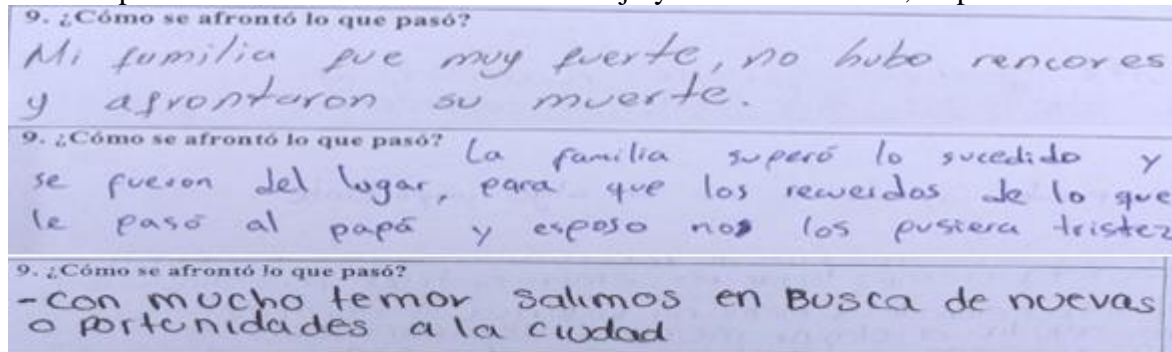 9. ¿Cómo se afrontó lo que pasó?
Mi familia fue muy fuerte, no hubo rencores
y afrontaron su muerte.
9. ¿Cómo se afrontó lo que pasó? La familia superó lo sucedido y
se fueron del lugar, para que los recuerdos de lo que
le pasó al papá y esposo no los pusiera tristez
9. ¿Cómo se afrontó lo que pasó?
-con mucho temor salimos en Busca de nuevas
oportunidades a la ciudad